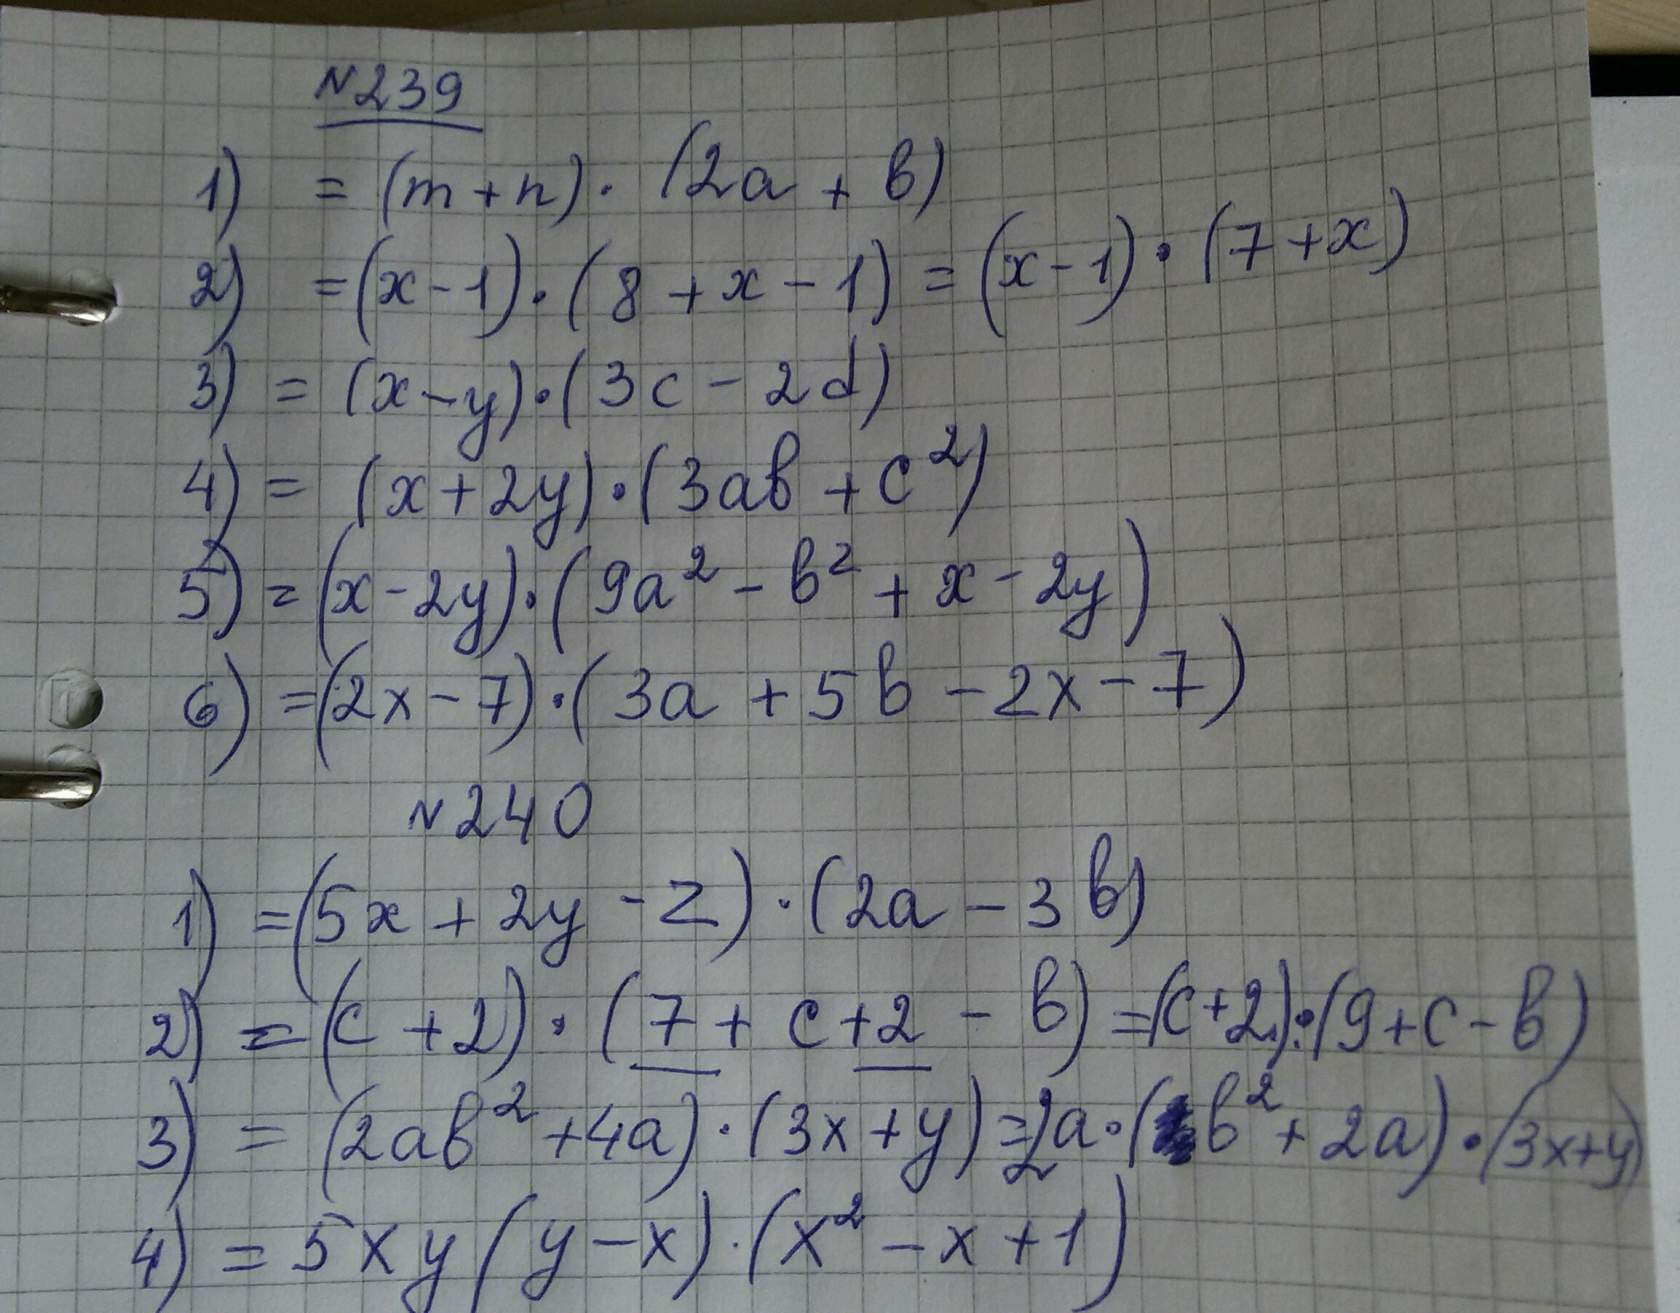 N239
1) = (m+n)·(2a+b)
2) =(x-1)·(8+x-1)=(x-1)·(7+x)
3) = (x-y)·(3c-2d)
4) = (x+2y)·(3ab+c²)
5) =(x-2y)·(9a²-b²+x-2y)
6) =(2x-7)·(3a+5b-2x-7)
N240
1) =(5x+2y-z)·(2a-3b)
2) =(c+2)·(7+c+2-b)=(c+2)·(9+c-b)
3) = (2ab²+4a)·(3x+y)=2a·(b²+2a)·(3x+y)
4) = 5xy(y-x)·(x²-x+1)